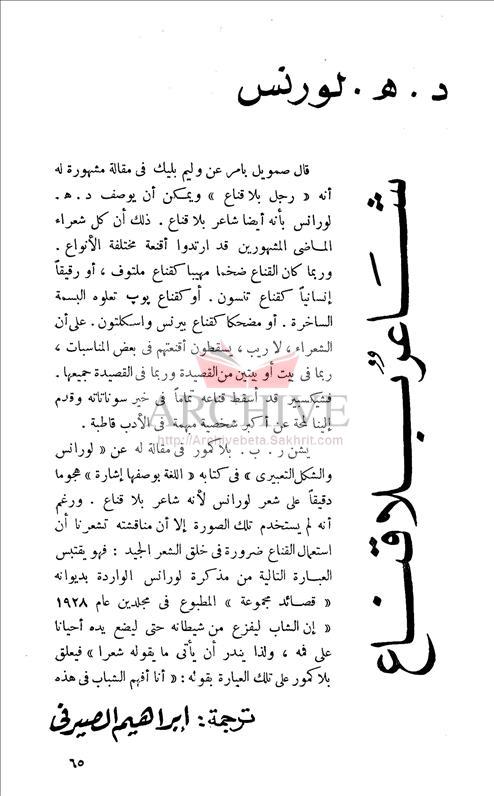 د . ه . لورنس
شاعر بلا قناع
قال صمويل بامر عن وليم بليك فى مقالة مشهورة له
أنه « رجل بلا قناع » ويمكن أن يوصف د . ه .
لورانس بأنه أيضا شاعر بلا قناع . ذلك أن كل شعراء
الماضى المشهورين قد ارتدوا أقنعة مختلفة الأنواع .
وربما كان القناع ضخما مهيبا كقناع ملتوف ، أو رقيقاً
إنسانياً كقناع تنسون . أو كقناع يوپ تعلوه البسمة
الساخرة . أو مضحكا كقناع بيرنس واسكلتون . على أن
الشعراء ، لا ريب ، يسقطون أقنعتهم فى بعض المناسبات ،
ربما فى بيت أو بيتين من القصيدة وربما فى القصيدة جميعها .
فشكسبير قد أسقط قناعه تماماً فى خير سوناتاته وقدم
إلينا لمحة عن أكبر شخصية مبهمة فى الأدب قاطبة .
ARCHIVE
http://Archivebeta.Sakhrit.com
يشن ر . ب . بلاكمور فى مقالة له عن « لورانس
والشكل التعبيرى » فى كتابه « اللغة بوصفها إشارة » هجوما
دقيقاً على شعر لورانس لأنه شاعر بلا قناع . ورغم
أنه لم يستخدم تلك الصورة إلا أن مناقشته تشعرنا أن
استعمال القناع ضرورة فى خلق الشعر الجيد : فهو يقتبس
العبارة التالية من مذكرة لورانس الواردة بديوانه
« قصائد مجموعة » المطبوع فى مجلدين عام ١٩٢٨
« إن الشاب ليفزع من شيطانه حتى ليضع يده أحيانا
على فمه ، ولذا يندر أن يأتى ما يقوله شعرا » فيعلق
بلاكمور على تلك العبارة بقوله : « أنا أفهم الشباب فى هذه
ترجمة : إبراهيم الصيرفى
٦٥